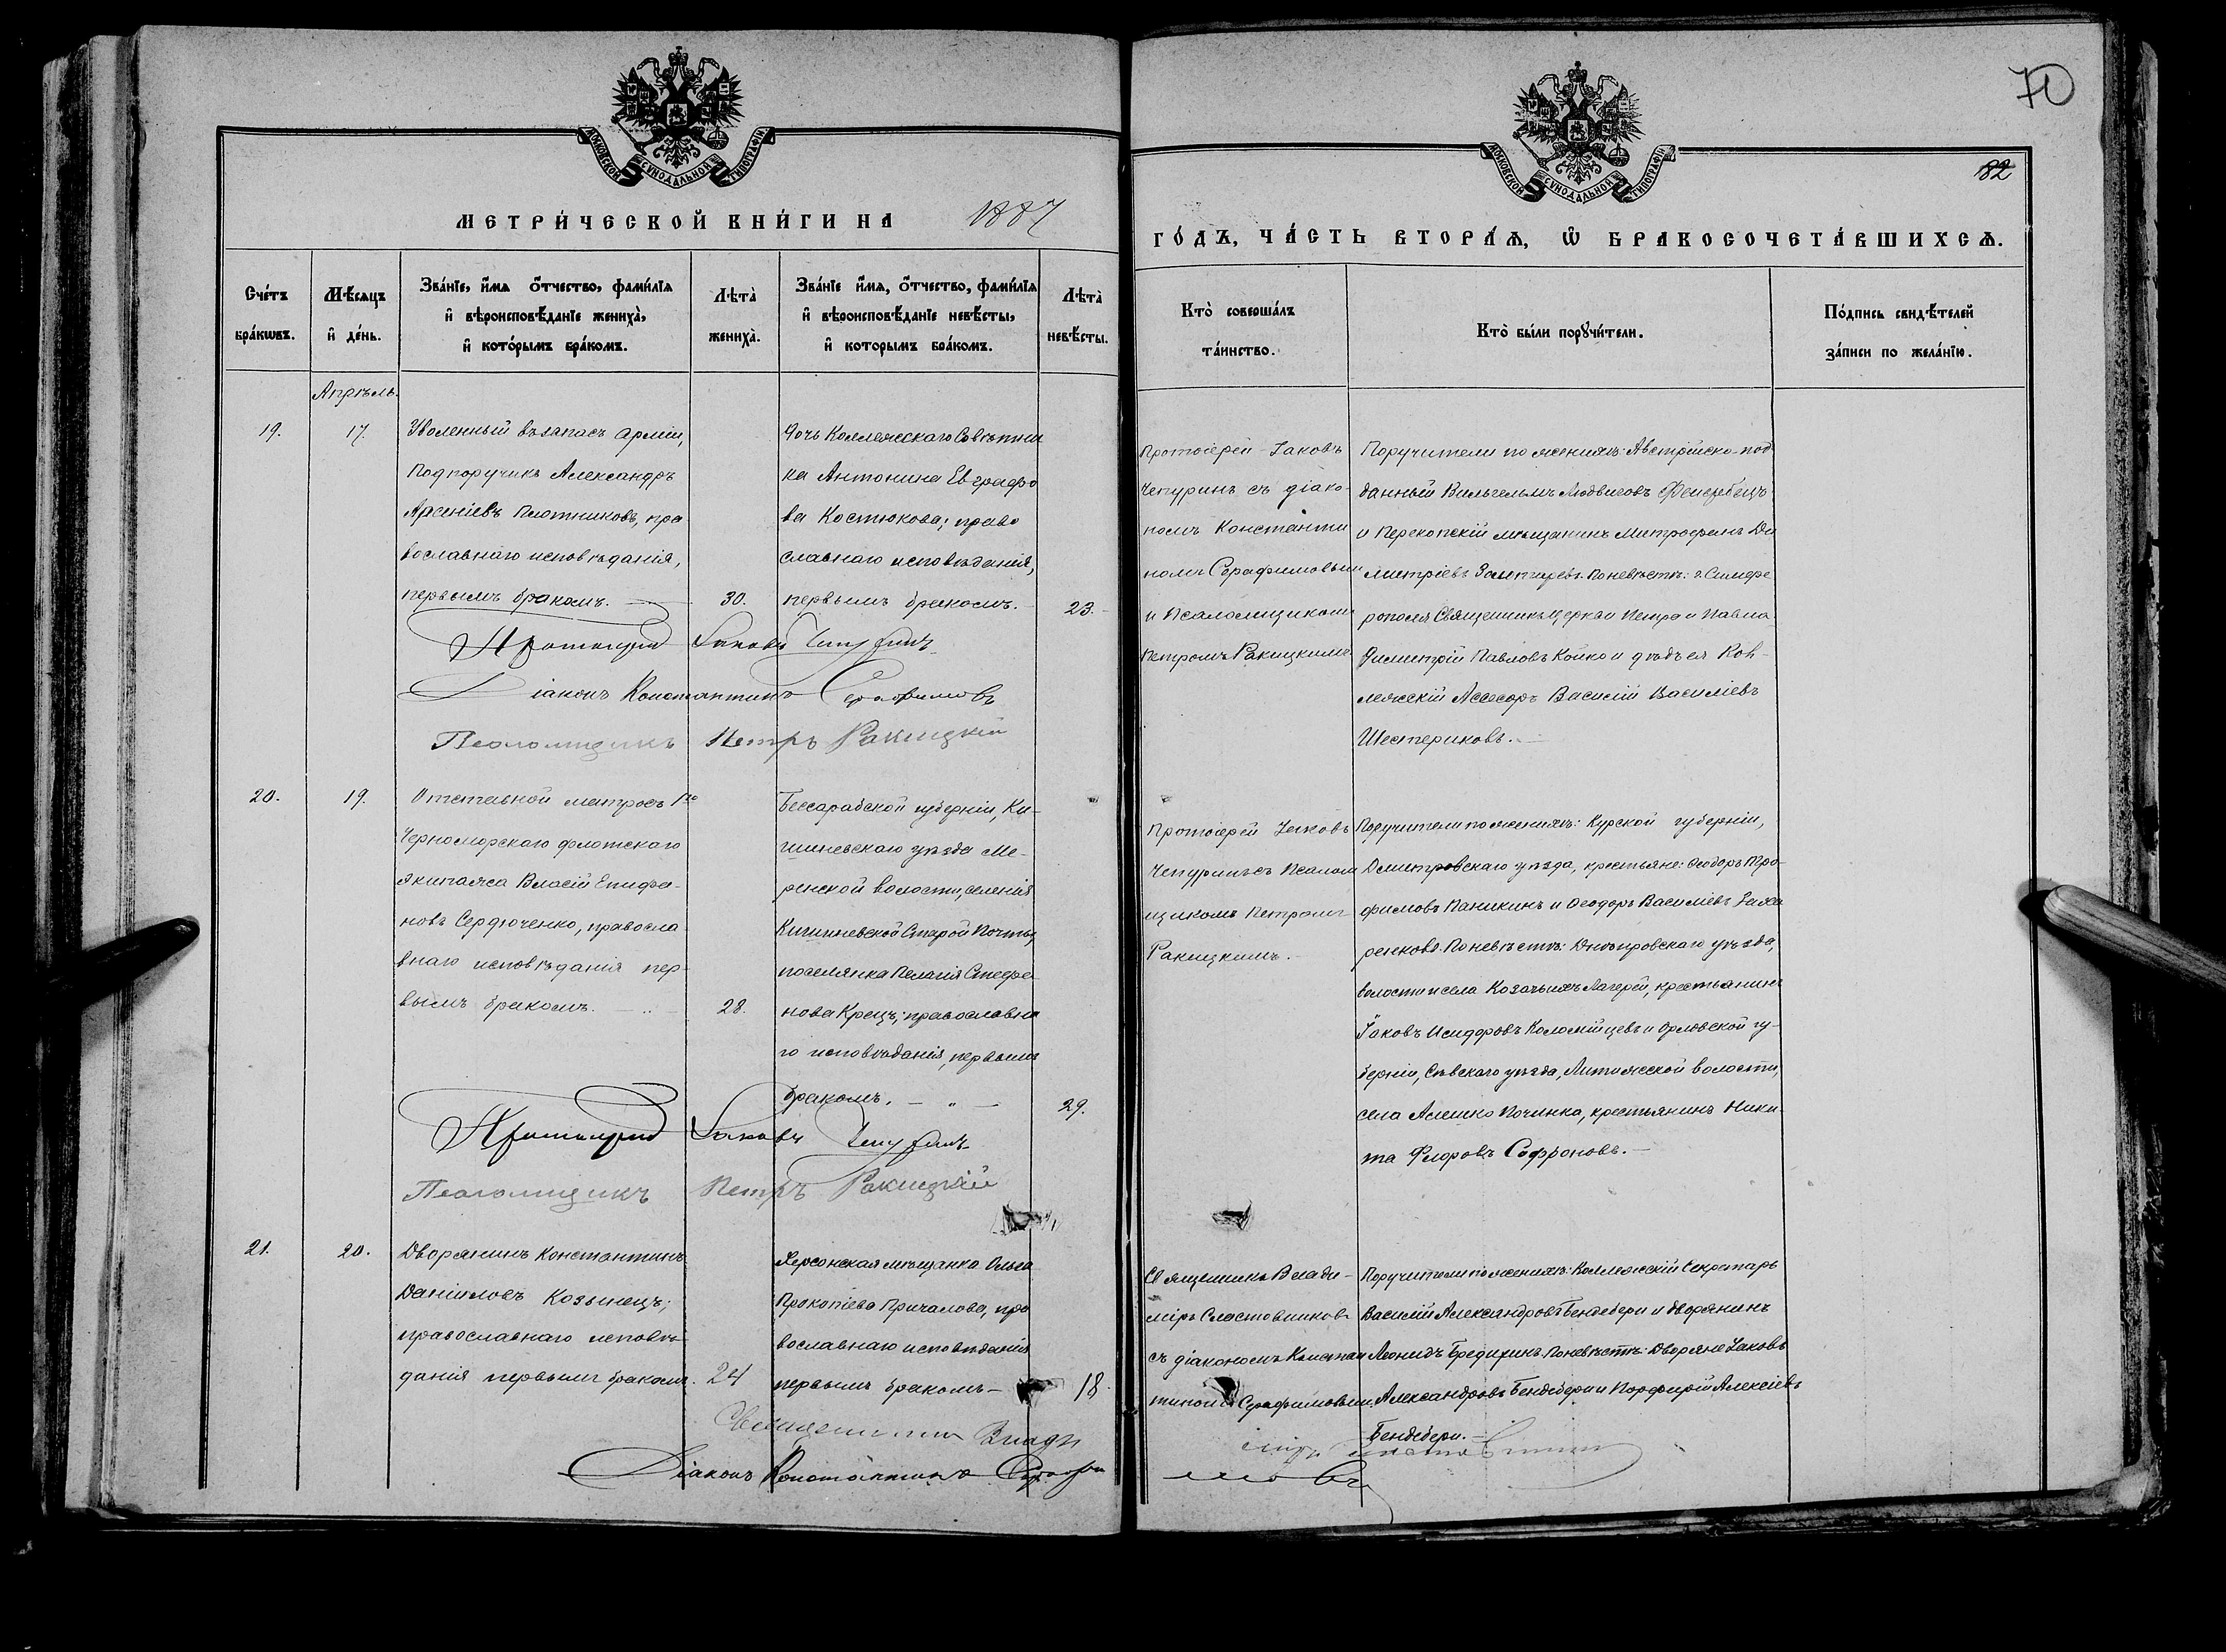 70
82
МОСКОВСКОЙ СѴНОДАЛЬНОЙ ТИПОГРАФІИ
МОСКОВСКОЙ СѴНОДАЛЬНОЙ ТИПОГРАФІИ
МЕТРИ́ЧЕСКОЙ КНИ́ГИ НА 1887
ГО́ДЪ, ЧА́СТЬ ВТОРА́Ѧ, Ѡ҆ БРАКОСОЧЕТА́ВШИХСѦ.
Сче́тъ
бра́кѡвъ.
Мѣ́сѧцъ
и҆ де́нь.
Зва́нїе, и҆́мѧ ѻ҆́тчество, фами́лїѧ
и҆ вѣроисповѣ́данїе жениха̀,
и҆ кото́рымъ бра́комъ.
Лѣта̀
жениха̀.
Зва́нїе и҆́мѧ, ѻ҆́тчество, фами́лїѧ
и҆ вѣроисповѣ́данїе невѣ́сты,
и҆ которымъ бра́комъ.
Лѣта̀
невѣ́сты.
Кто̀ соверша́лъ
та́инство.
Кто̀ бы́ли порꙋчи́тели.
По́дпись свидѣ́телей
за́писи по жела́нїю.
Апрѣль.
19.
17.
Уволенный въ запасъ арміи,
Подпоручикъ Александръ
Арсеніевъ Плотниковъ, пра
вославнаго исповѣданія,
первымъ бракомъ.
30.
Дочь Коллежскаго Совѣтни
ка Антонина Евграфо
ва Костюкова; право
славнаго исповѣданія,
первымъ бракомъ.
23.
Протоіерей Іаковъ
Чепуринъ съ діако-
номъ Константи
номъ Серафимовымъ
и Псаломщикомъ
Петромъ Ракицкимъ
Поручители по женихѣ: Австрійско-под
данный Вильгельмъ Людвиговъ
и Перекопскій мѣщанинъ Митрофанъ Ди
митріевъ По невѣстѣ: г. Симфе
рополя Священникъ Церкви Петра и Павла
Димитрій Павловъ Койко и дядъ ея Кол-
лежскій Асессоръ Василій Василіевъ
Шестериковъ.
Протоіерей Іаковъ Чепуринъ
Діаконъ Константинъ Серафимовъ
Псаломщикъ Петръ Ракицкій
20.
19.
Отставной матросъ 1го
Черноморскаго флотскаго
экипажа Власій Епифа-
новъ Сердюченко, правосла
внаго исповѣданія пер-
вымъ бракомъ.
28.
Бессарабской губерніи, Ки-
шиневскаго уѣзда Ме-
ренской волости, селенія
Кишиневской Старой Почты,
поселянка Пелагія Стефа-
нова Крецъ; православна
го исповѣданія, первымъ
бракомъ.
29.
Протоіерей Іаковъ
Чепуринъ съ Псалом
щикомъ Петромъ
Ракицкимъ.
Поручители по женихѣ: Курской губерніи,
Дмитровскаго уѣзда, крестьяне: Ѳеодоръ Тро-
фимовъ Паникинъ и Ѳеодоръ Василіевъ Заха
ренковъ. По невѣстѣ: Днѣпровскаго уѣзда,
волости и села Козачьихъ Лагерей, крестьянинъ
Іаковъ Исидоровъ Коломійцевъ и Орловской гу-
берніи, Сѣвскаго уѣзда, Литижской волости,
села Алешко Починка, крестьянинъ Ники-
та Флоровъ Софроновъ.
Протоіерей Іаковъ Чепуринъ
Псаломщикъ Петръ Ракицкій
21.
20.
Дворянинъ Константинъ
Даніиловъ Козынецъ;
православнаго исповѣ-
данія первымъ бракомъ.
24
Херсонская мѣщанка Ольга
Прокопіева Причалова, пра
вославнаго исповѣданія
первымъ бракомъ
18.
Священникъ Влади-
міръ Сластовниковъ
съ діакономъ Констан
тиномъ Серафимовымъ
Поручители по женихѣ: Коллежскій Секретарь
Василій Александровъ Бендебери и дворянинъ
Леонидъ Бредихинъ. По невѣстѣ: Дворяне Іаковъ
Александровъ Бендебери и Порфирій Алексіевъ
Бендебери.
Священникъ Влади
міръ
Діаконъ Константинъ Серафи
мовъ